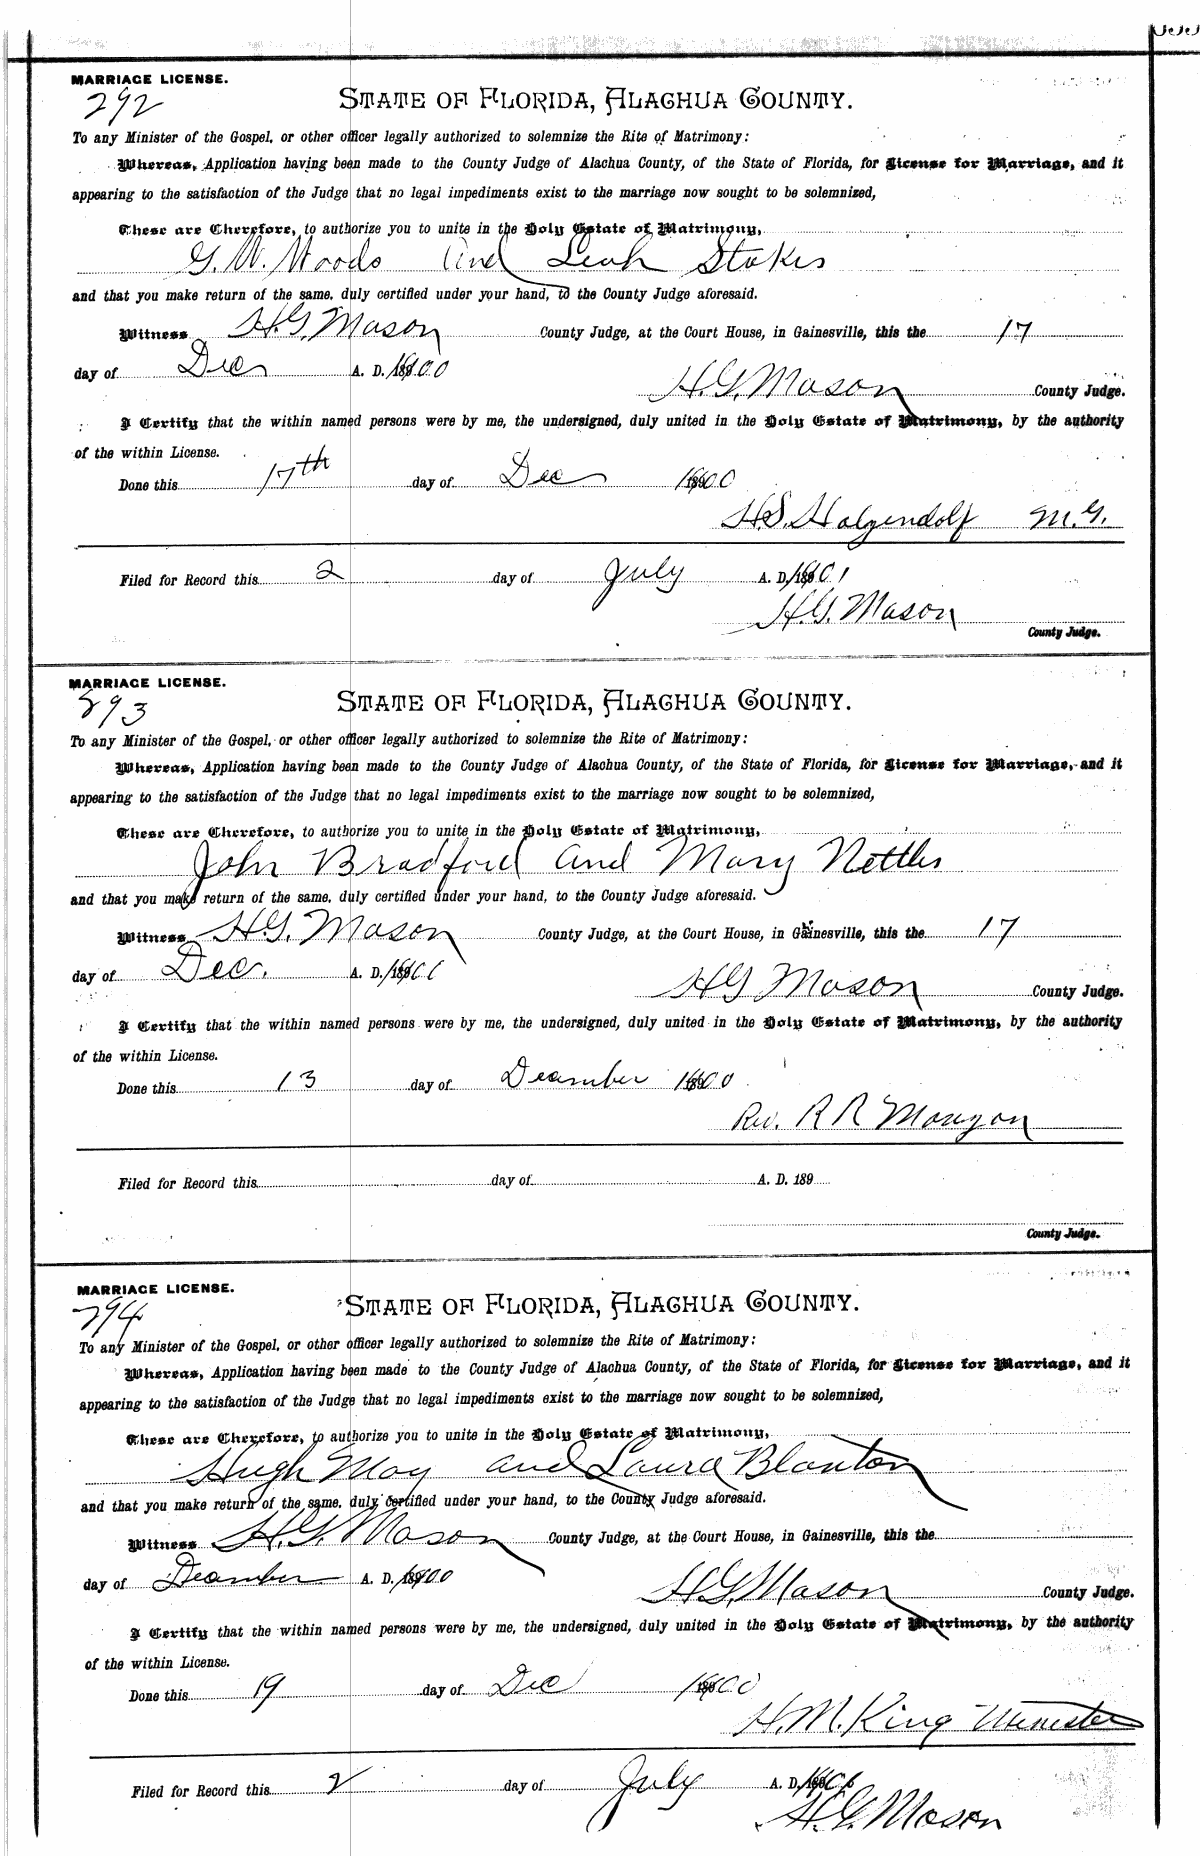 333
MARRIAGE LICENSE.
292
STATE OF FLORIDA, ALACHUA COUNTY.
To any Minister of the Gospel, or other officer legally authorized to solemnize the Rite of Matrimony:
Whereas, Application having been made to the County Judge of Alachua County, of the State of Florida, for License for Marriage, and it
appearing to the satisfaction of the Judge that no legal impediments exist to the marriage now sought to be solemnized,
These are Therefore, to authorize you to unite in the Holy Estate of Matrimony,
G. W. Woods and Leah Stokes
and that you make return of the same, duly certified under your hand, to the County Judge aforesaid.
Witness H.G. Mason County Judge, at the Court House, in Gainesville, this the 17
day of Dec A. D. 1900
H.G. Mason County Judge.
I Certify that the within named persons were by me, the undersigned, duly united in the Holy Estate of Matrimony, by the authority
of the within License.
Done this 17th day of Dec 1900
H.S. Holzendolf M.G.
Filed for Record this 2 day of July A. D. 1901
H.G. Mason
County Judge.
MARRIAGE LICENSE.
293
STATE OF FLORIDA, ALACHUA COUNTY.
To any Minister of the Gospel, or other officer legally authorized to solemnize the Rite of Matrimony:
Whereas, Application having been made to the County Judge of Alachua County, of the State of Florida, for License for Marriage, and it
appearing to the satisfaction of the Judge that no legal impediments exist to the marriage now sought to be solemnized,
These are Therefore, to authorize you to unite in the Holy Estate of Matrimony,
John Bradford and Mary Nettles
and that you make return of the same, duly certified under your hand, to the County Judge aforesaid.
Witness H.G. Mason County Judge, at the Court House, in Gainesville, this the 17
day of Dec. A. D. 1900
H G Mason County Judge.
I Certify that the within named persons were by me, the undersigned, duly united in the Holy Estate of Matrimony, by the authority
of the within License.
Done this 13 day of December 1900
Rev. R R
Filed for Record this day of A. D. 189
County Judge.
MARRIAGE LICENSE.
294
STATE OF FLORIDA, ALACHUA COUNTY.
To any Minister of the Gospel, or other officer legally authorized to solemnize the Rite of Matrimony:
Whereas, Application having been made to the County Judge of Alachua County, of the State of Florida, for License for Marriage, and it
appearing to the satisfaction of the Judge that no legal impediments exist to the marriage now sought to be solemnized,
These are Therefore, to authorize you to unite in the Holy Estate of Matrimony,
Hugh May and Laura Blanton
and that you make return of the same, duly certified under your hand, to the County Judge aforesaid.
Witness H.G. Mason County Judge, at the Court House, in Gainesville, this the
day of December A. D. 1900
H G Mason County Judge.
I Certify that the within named persons were by me, the undersigned, duly united in the Holy Estate of Matrimony, by the authority
of the within License.
Done this 19 day of Dec 1900
H.M. King Minister
Filed for Record this 2 day of July A. D. 190
H.G. Mason